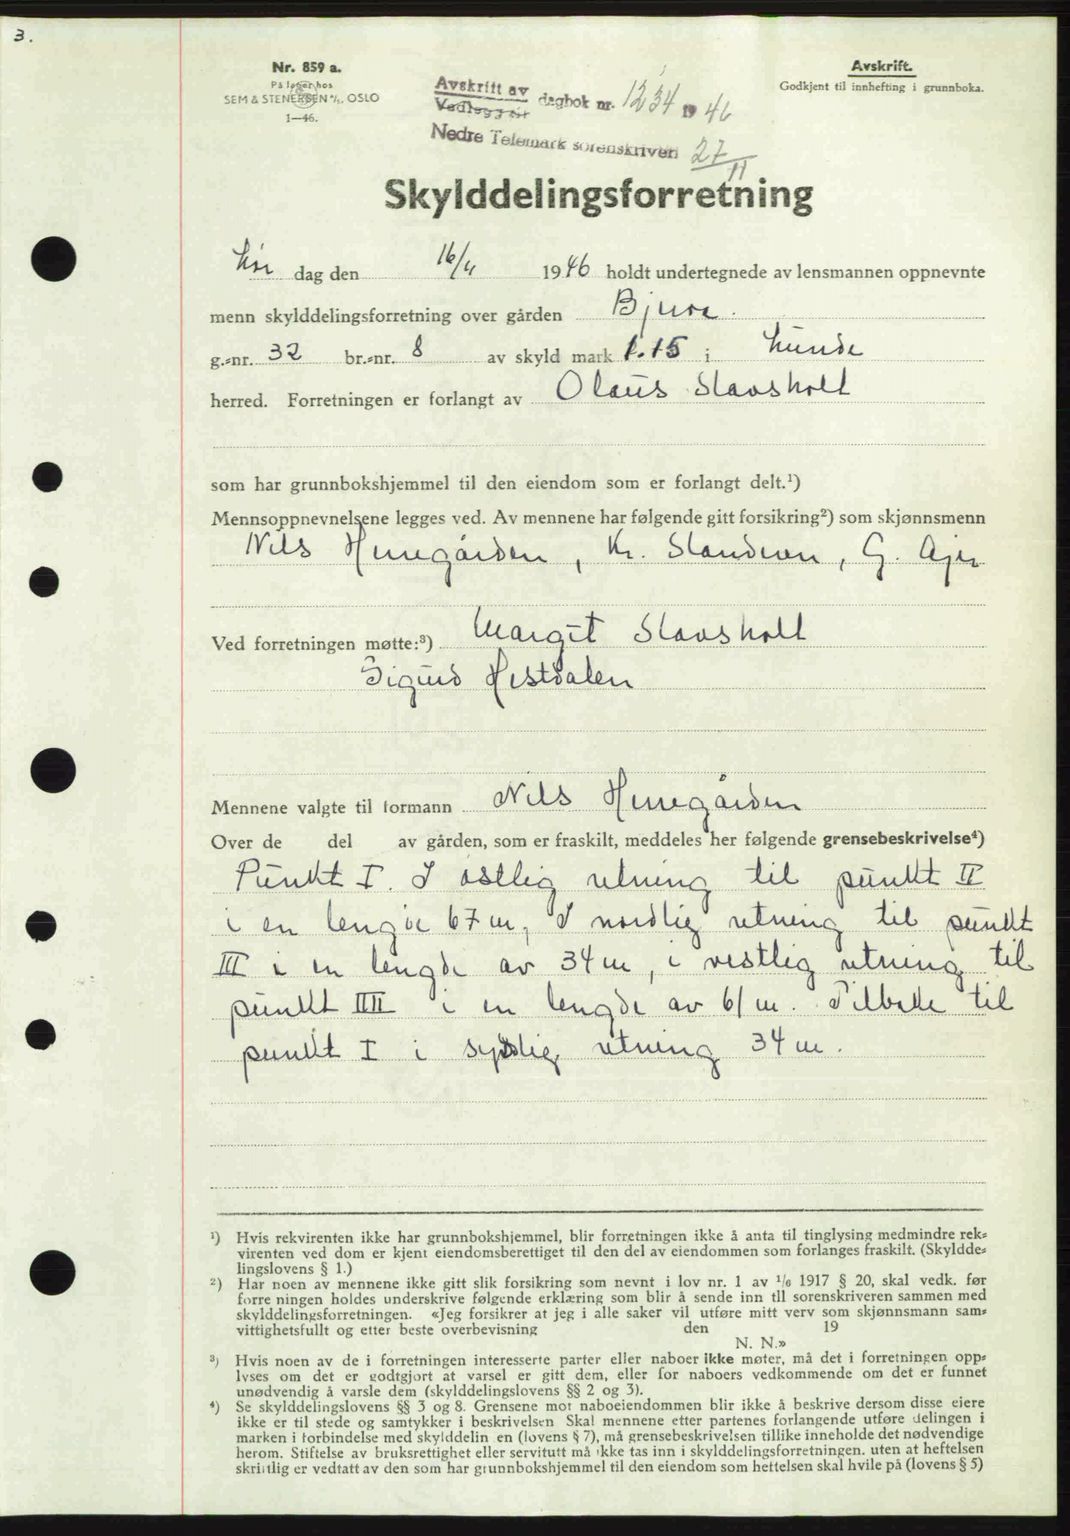 3.
Nr. 859 a.
På lager hos
SEM & STENERSEN A/S, OSLO
1—46.
Avskrift.
Godkjent til innhefting i grunnboka.
Avskrift av
Vedlegg til dagbok nr. 1234 1946
Nedre Telemark sorenskriveri 27/11
Skylddelingsforretning
Lør dag den 16/11 1946 holdt undertegnede av lensmannen oppnevnte
menn skylddelingsforretning over gården Bjuse.
g.-nr. 32 br.-nr. 8 av skyld mark 1.15 i Lunde
herred. Forretningen er forlangt av Olaus Slaasholt
som har grunnbokshjemmel til den eiendom som er forlangt delt.¹)
Mennsoppnevnelsene legges ved. Av mennene har følgende gitt forsikring²) som skjønnsmenn
Nils Hussgården, Kr. G. Ajer
Ved forretningen møtte:³) Margit Slaasholt
Sigurd Hestdalen
Mennene valgte til formann Nils Hussgården
Over de del av gården, som er fraskilt, meddeles her følgende grensebeskrivelse⁴)
Punkt I. I østlig retning til punkt II
i en lengde 67 m, I nordlig retning til punkt
III i en lengde av 34 m, i vestlig retning til
punkt IIII i en lengde av 61 m. Tilbake til
punkt I i sydlig retning 34 m.
¹) Hvis rekvirenten ikke har grunnbokshjemmel, blir forretningen ikke å anta til tinglysing medmindre rek-
virenten ved dom er kjent eiendomsberettiget til den del av eiendommen som forlanges fraskilt. (Skyldde-
lingslovens § 1.)
²) Har noen av mennene ikke gitt slik forsikring som nevnt i lov nr. 1 av 1/6 1917 § 20, skal vedk. før
forre ningen holdes underskrive følgende erklæring som blir å sende inn til sorenskriveren sammen med
skylddelingsforretningen. «Jeg forsikrer at jeg i alle saker vil utføre mitt verv som skjønnsmann sam-
vittighetsfullt og etter beste overbevisning den 19
N. N.»
³) Hvis noen av de i forretningen interesserte parter eller naboer ikke møter, må det i forretningen opp-
lyses om det er godtgjort at varsel er gitt dem, eller for naboers vedkommende om det er funnet
unødvendig å varsle dem (skylddelingslovens §§ 2 og 3).
⁴) Se skylddelingslovens §§ 3 og 8. Grensene mot naboeiendommen blir ikke å beskrive dersom disse eiere
ikke er til stede og samtykker i beskrivelsen Skal mennene etter partenes forlangende utføre delingen i
marken i forbindelse med skylddelin en (lovens § 7), må grensebeskrivelsen tillike inneholde det nødvendige
herom. Stiftelse av bruksrettighet eller servitutt må ikke tas inn i skylddelingsforretningen. uten at heftelsen
skriftlig er vedtatt av den som har grunnbokshjemmel til den eiendom som heftelsen skal hvile på (lovens § 5)